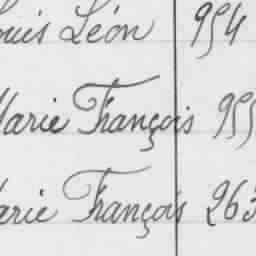 ouis Léon 954
Marie François 955
arie François 263